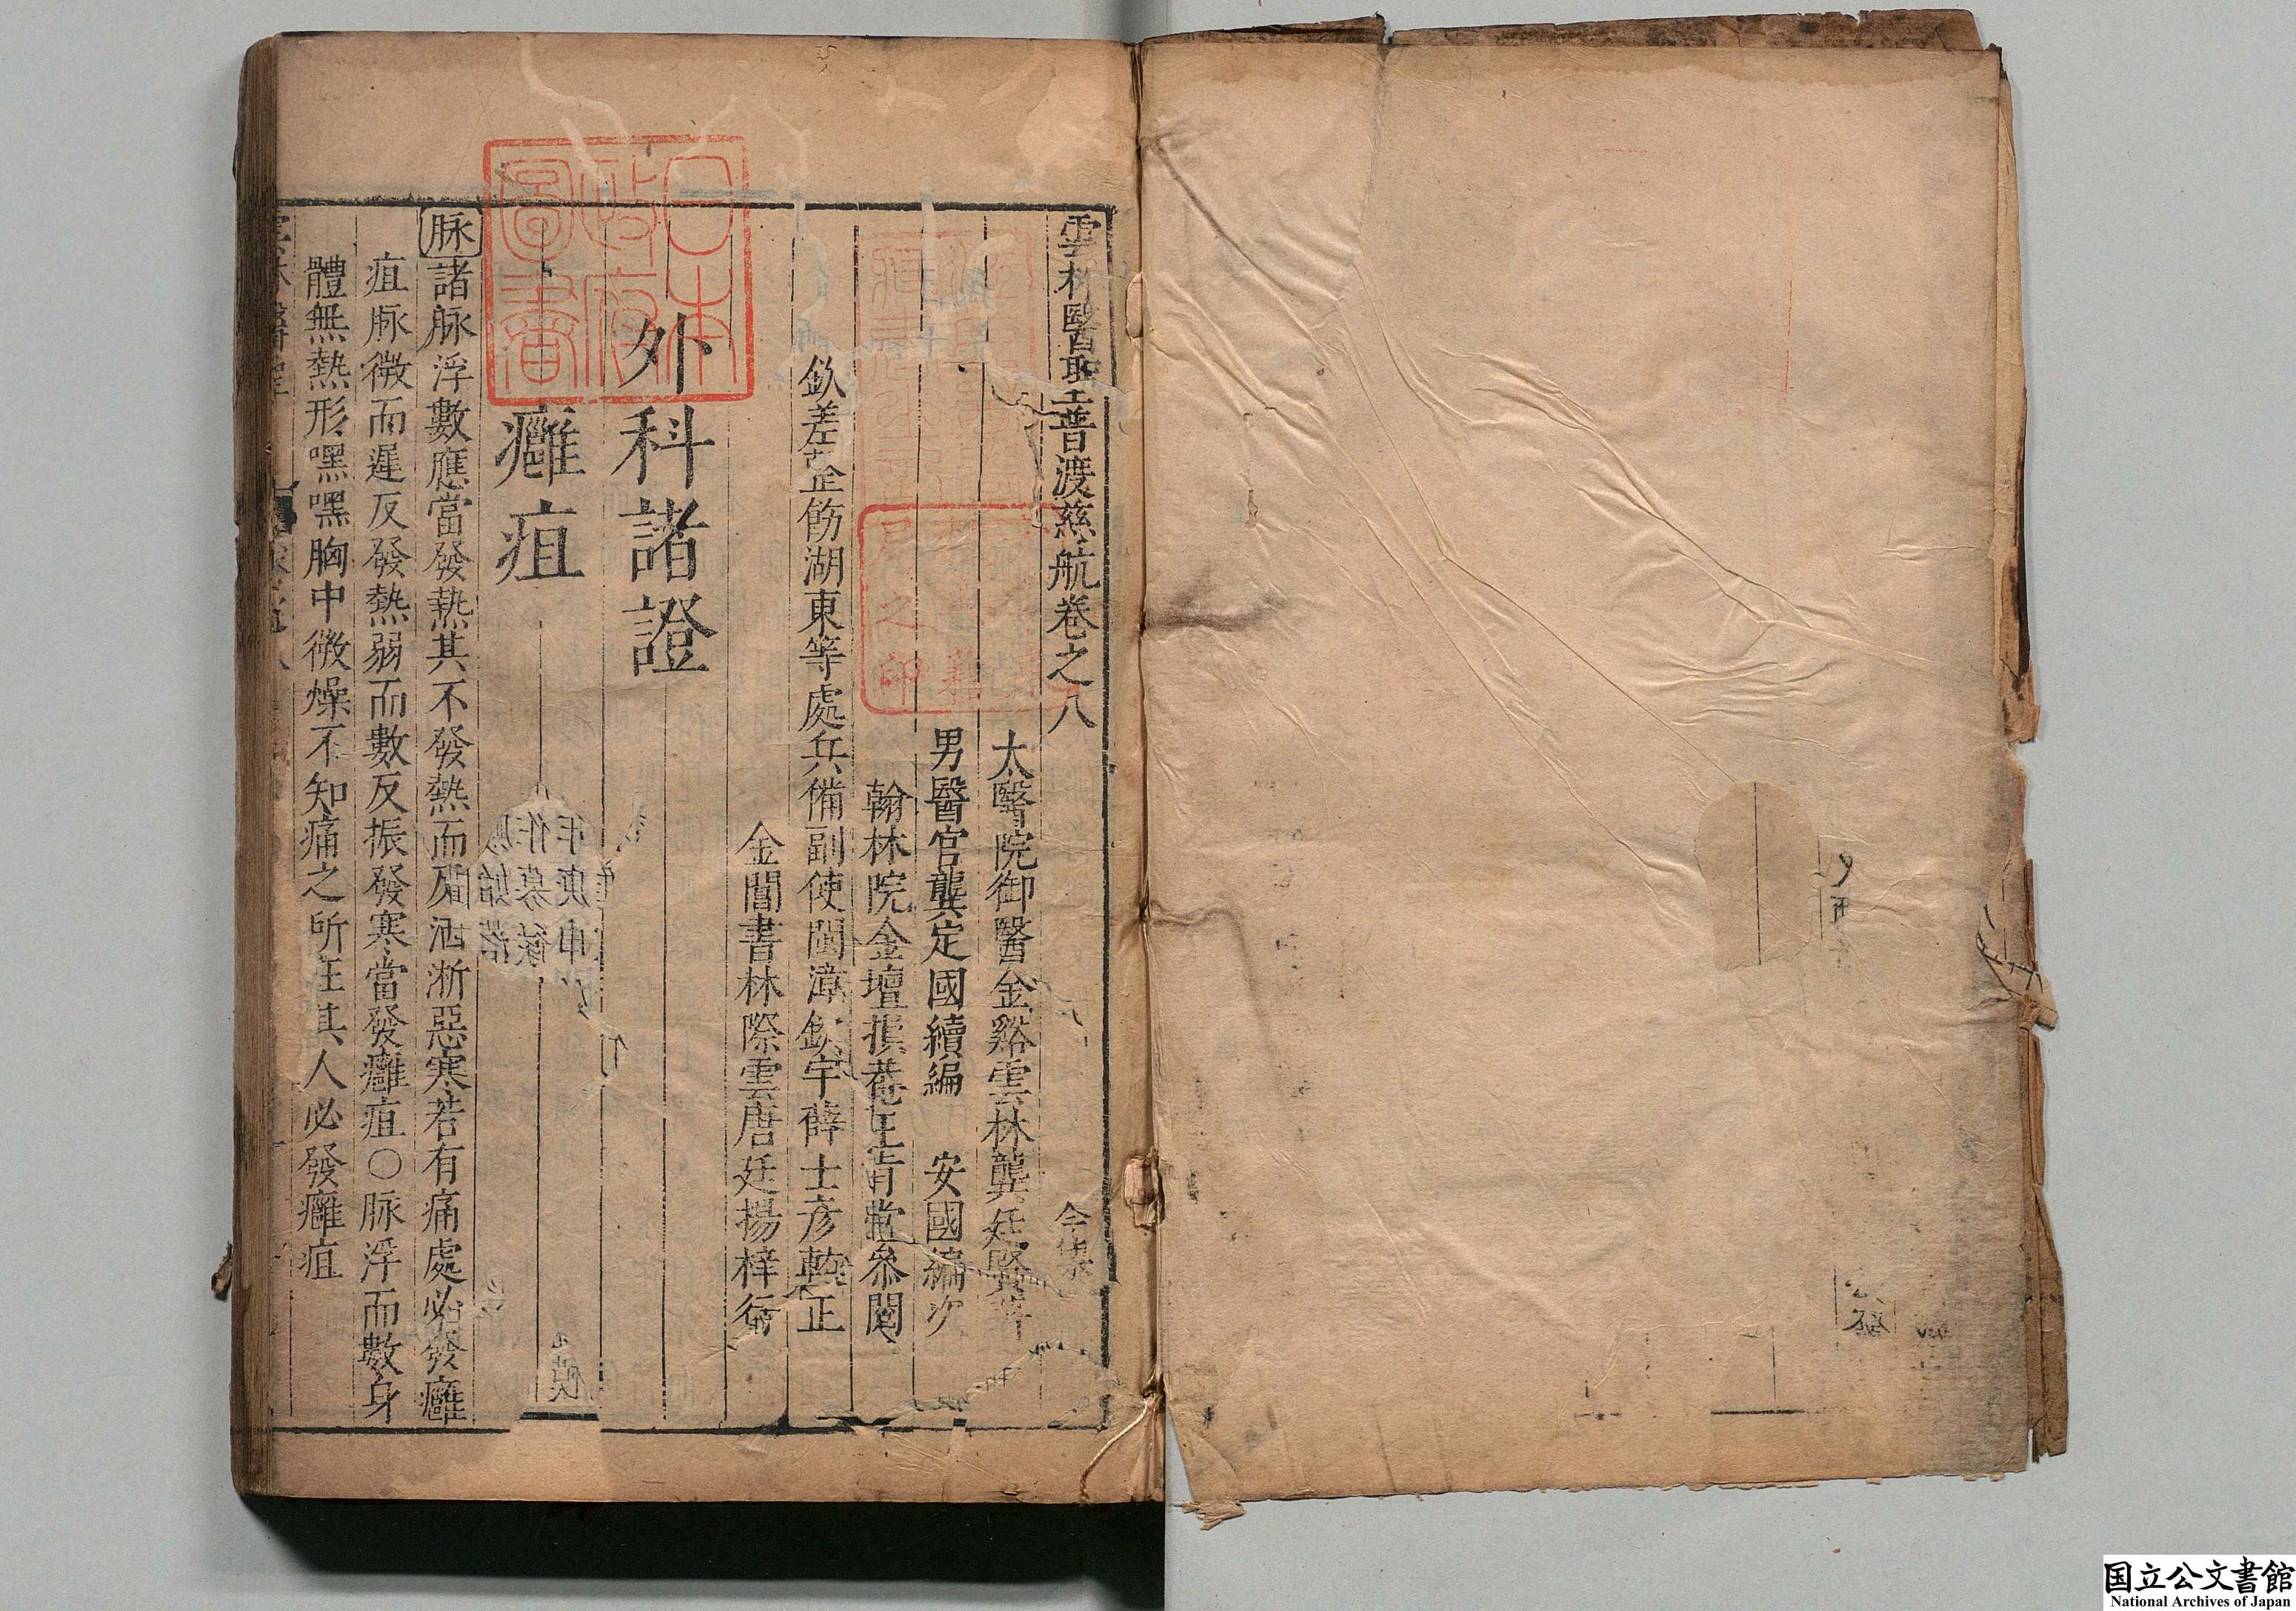 雲林醫聖普渡慈航卷之八
太醫院御醫金谿雲林龔廷賢
男醫官龔定國續編 安國編次
翰林院金壇損菴王肯堂參閱
欽差整飭湖東等處兵備副使閩漳欽宇薛士彥訂正
金閶書林際雲唐廷揚梓行
外科諸證
癰疽
脉諸脉浮數應當發熱其不發熱而反洒淅惡寒若有痛處必發癰
疽脉微而遲反發熱弱而數反振發寒當發癰疽○脉浮而數身
體無熱形嘿嘿胸中微燥不知痛之所在其人必發癰疽
日本
政府
圖書
国立公文書館
National Archives of Japan